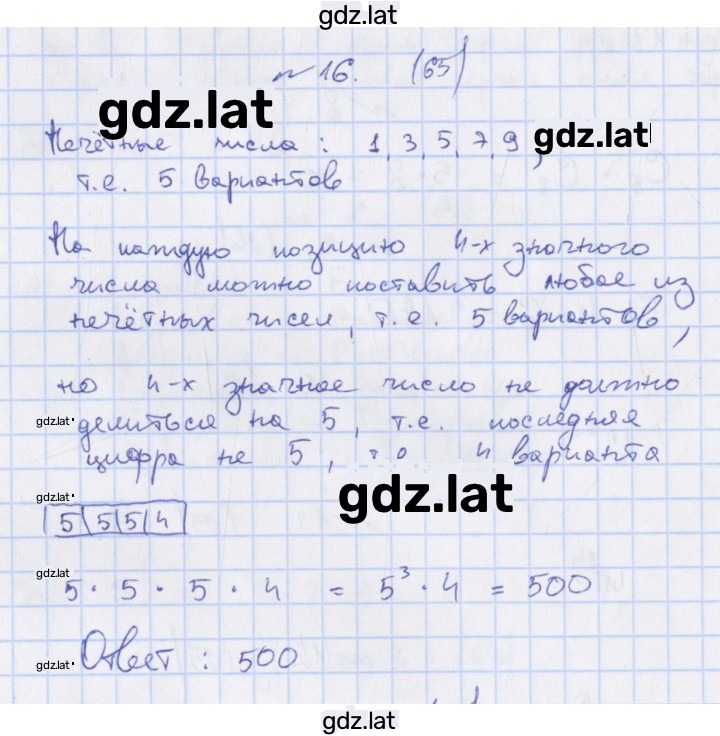 gdz.lat
№ 16. (65)
gdz.lat
Нечётные числа : 1, 3, 5, 7, 9, gdz.lat
т.е. 5 вариантов
На каждую позицию 4-х значного
числа можно поставить любое из
нечётных чисел, т.е. 5 вариантов,
но 4-х значное число не должно
gdz.lat делиться на 5, т.е. последняя
цифра не 5, то 4 варианта
gdz.lat
gdz.lat
5 5 5 4
gdz.lat
5 · 5 · 5 · 4 = 5³ · 4 = 500
gdz.lat Ответ : 500
gdz.lat